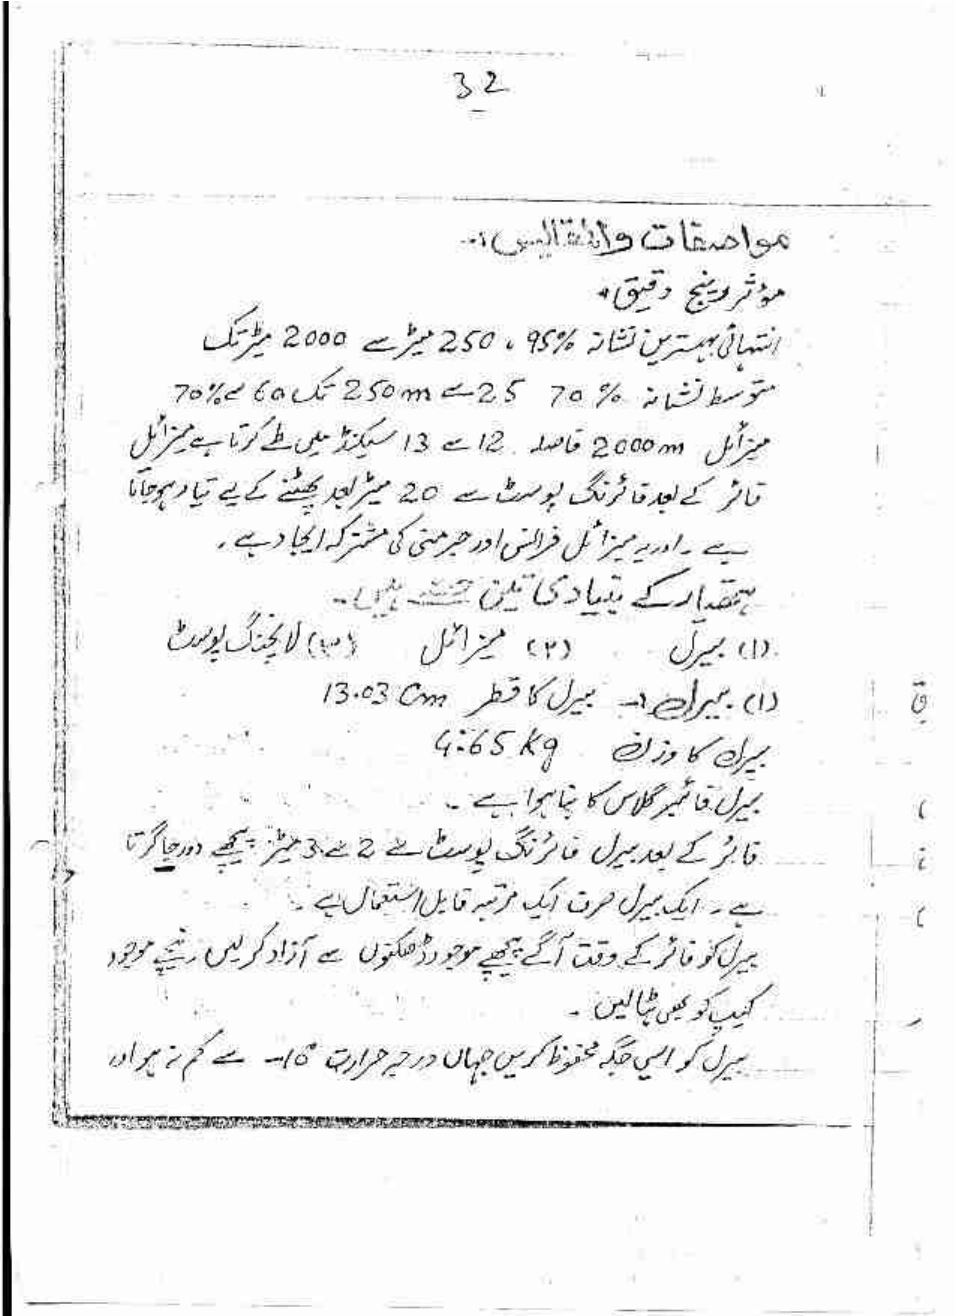 32
مواصفات و
مؤثر رینج دقیق:
انتہائی بہترین نشانہ 95% ، 250 میٹر سے 2000 میٹر تک
متوسط نشانہ 70 % 25 سے 250m تک 60 سے 70%
میزائل 2000m فاصلہ 12 سے 13 سیکنڈ میں طے کرتا ہے میزائل
فائر کے بعد فائرنگ پوسٹ سے 20 میٹر بعد پھٹنے کے لیے تیار ہوجاتا
ہے ۔ اور یہ میزائل فرانس اور جرمنی کی مشترکہ ایجاد ہے ۔
ہتھیار کے بنیادی تین حصے ہیں:۔
(۱) بیرل (۲) میزائل (۳) لانچنگ پوسٹ
(۱) بیرل :۔ بیرل کا قطر 13.03 Cm
بیرل کا وزن 4.65 kg
بیرل فائبر گلاس کا بنا ہوا ہے ۔
فائر کے بعد بیرل فائرنگ پوسٹ سے 2 سے 3 میٹر پیچھے دور جا گرتا
ہے ۔ ایک بیرل صرف ایک مرتبہ قابل استعمال ہے ۔
بیرل کو فائر کے وقت آگے پیچھے موجود ڈھکنوں سے آزاد کر لیں نیچے موجود
کیپ کو بھی ہٹا لیں ۔
بیرل کو ایسی جگہ محفوظ کریں جہاں درجہ حرارت سے کم نہ ہو اور